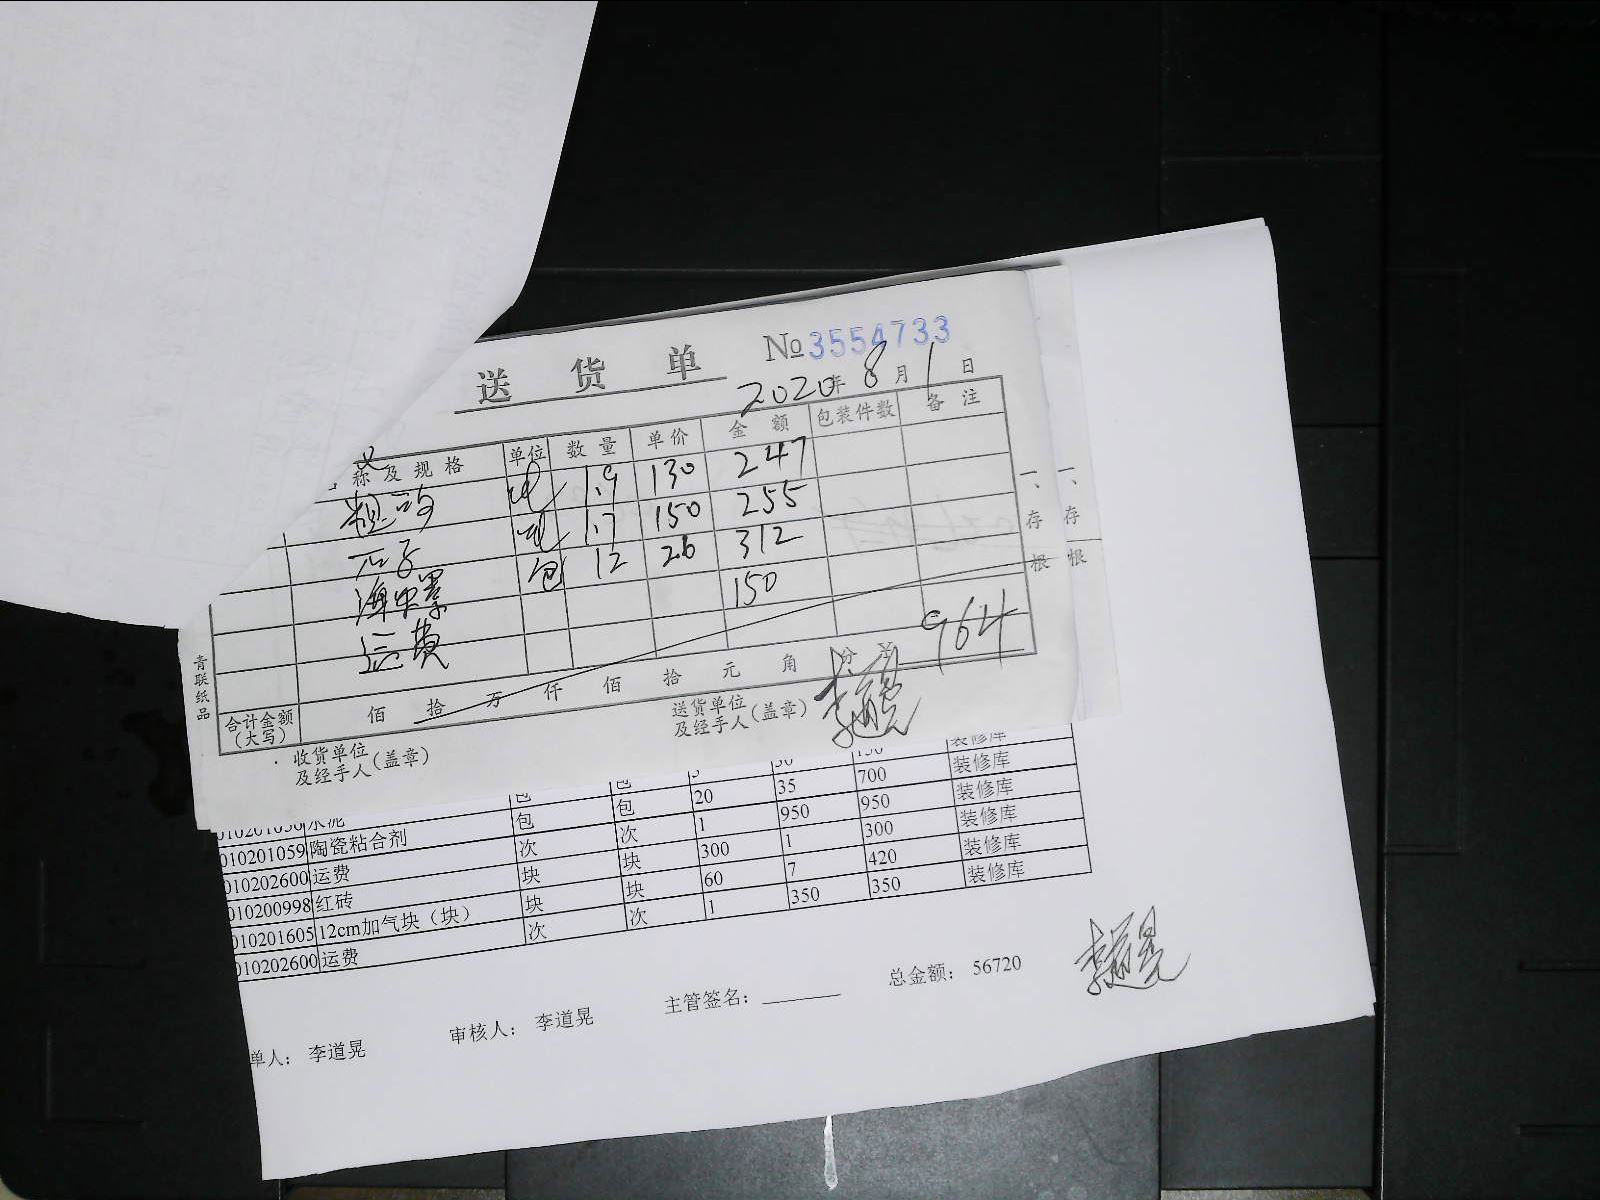 送 货 单 №3554733
2020年 8月 1日
称及规格 单位 数量 单价 金额 包装件数 备注
粗砂 1.9 130 247
石子 1.7 150 255
海中墨 包 12 26 312
运费 150
964
佰 拾 万 仟 佰 拾 元 角 分
合计金额
(大写)
收货单位
及经手人(盖章)
送货单位
及经手人(盖章)
青联纸品
一、存根
一、存根
包 包 20 35 700 装修库
水泥
010201059 陶瓷粘合剂 包 包 20 35 700 装修库
010202600 运费 次 次 1 950 950 装修库
010200998 红砖 块 块 300 1 300 装修库
010201605 12cm加气块（块） 块 块 60 7 420 装修库
010202600 运费 次 次 1 350 350 装修库
单人： 李道晃 审核人： 李道晃 主管签名： 总金额： 56720